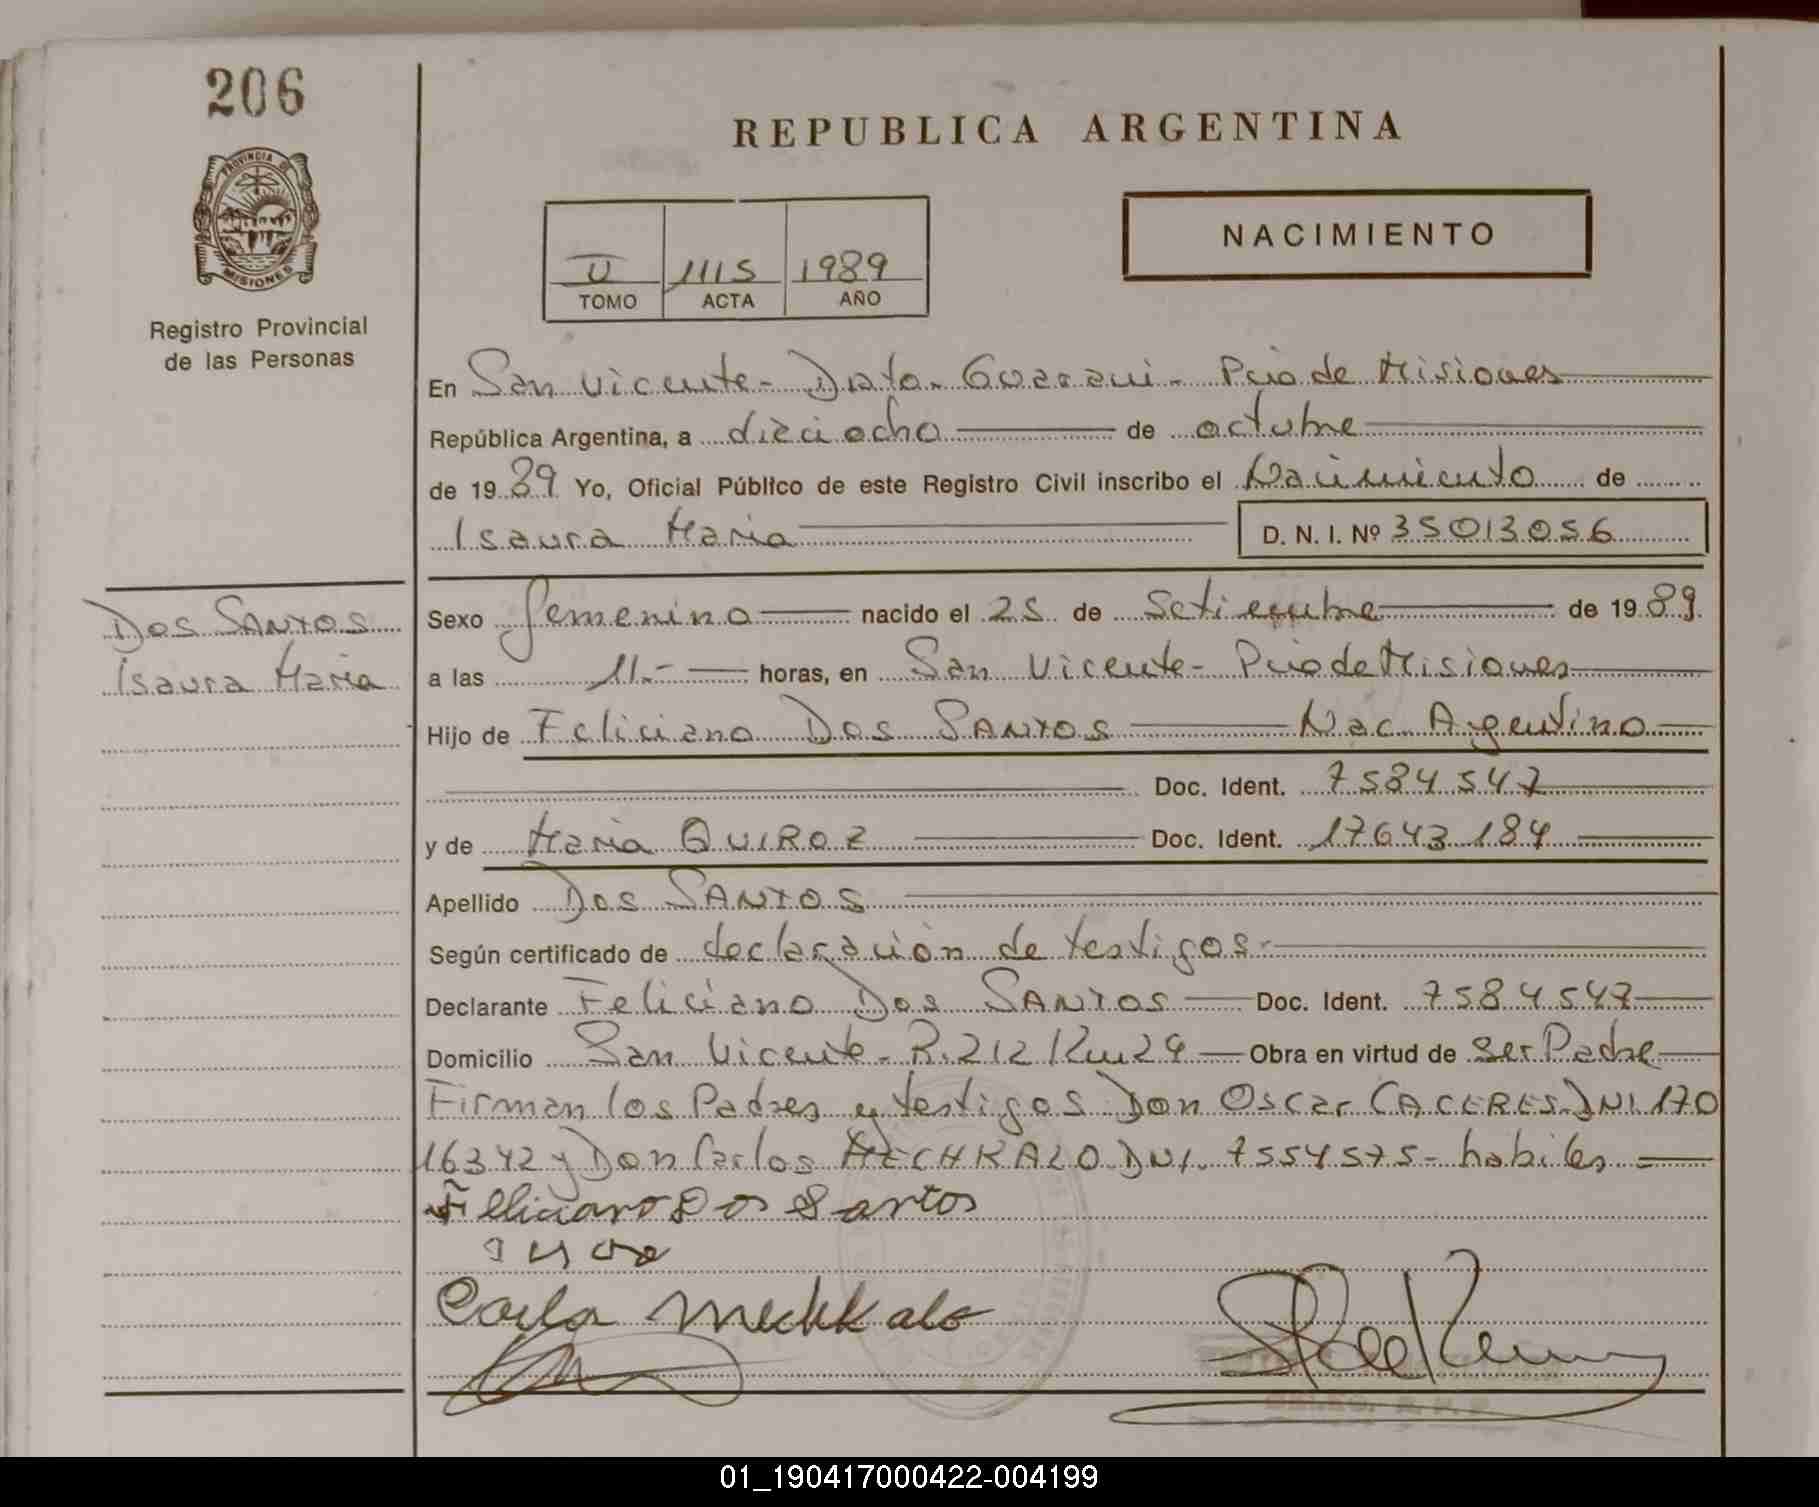 206
PROVINCIA DE
MISIONES
Registro Provincial
de las Personas
REPUBLICA ARGENTINA
II 1115 1989
TOMO ACTA AÑO
NACIMIENTO
En San Vicente - Dpto. Guarani - Pcia de Misiones
República Argentina, a dieciocho de octubre
de 1989 Yo, Oficial Público de este Registro Civil inscribo el Nacimiento de
Isaura Maria D. N. I. Nº 35013056
Dos SANTOS
Isaura Maria
Sexo femenino nacido el 25 de Setiembre de 1989.
a las 11.- horas, en San Vicente - Pcia de Misiones
Hijo de Feliciano Dos SANTOS Nac. Argentino
Doc. Ident. 7584547
y de Maria QUIROZ Doc. Ident. 17643184
Apellido Dos SANTOS
Según certificado de declaración de testigos.
Declarante Feliciano Dos SANTOS Doc. Ident. 7584547
Domicilio San Vicente - R. 212 Km 24 Obra en virtud de ser Padre
Firman los Padres y testigos Don Oscar CACERES DNI 170
16342 y Don Carlos MECHKALO DNI. 7554575 - habiles
Dos Santos
01_190417000422-004199